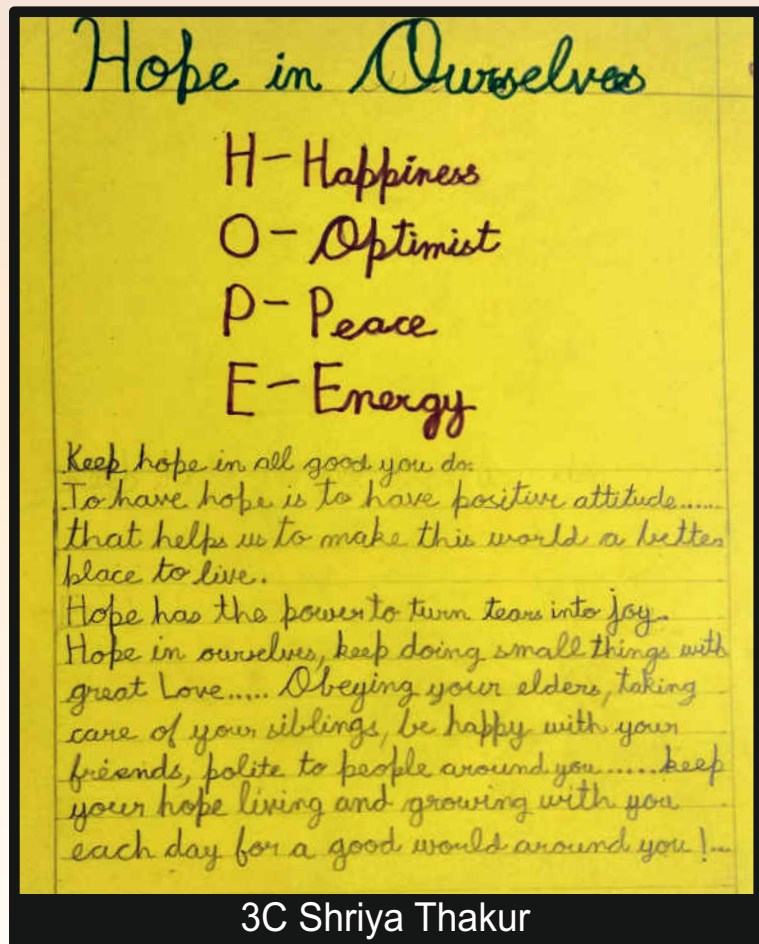 Hope in Ourselves
H - Happiness
O - Optimist
P - Peace
E - Energy
Keep hope in all good you do.
To have hope is to have positive attitude......
that helps us to make this world a better
place to live.
Hope has the power to turn tears into joy.
Hope in ourselves, keep doing small things with
great Love..... Obeying your elders, taking
care of your siblings, be happy with your
friends, polite to people around you......keep
your hope living and growing with you
each day for a good world around you !...
3C Shriya Thakur